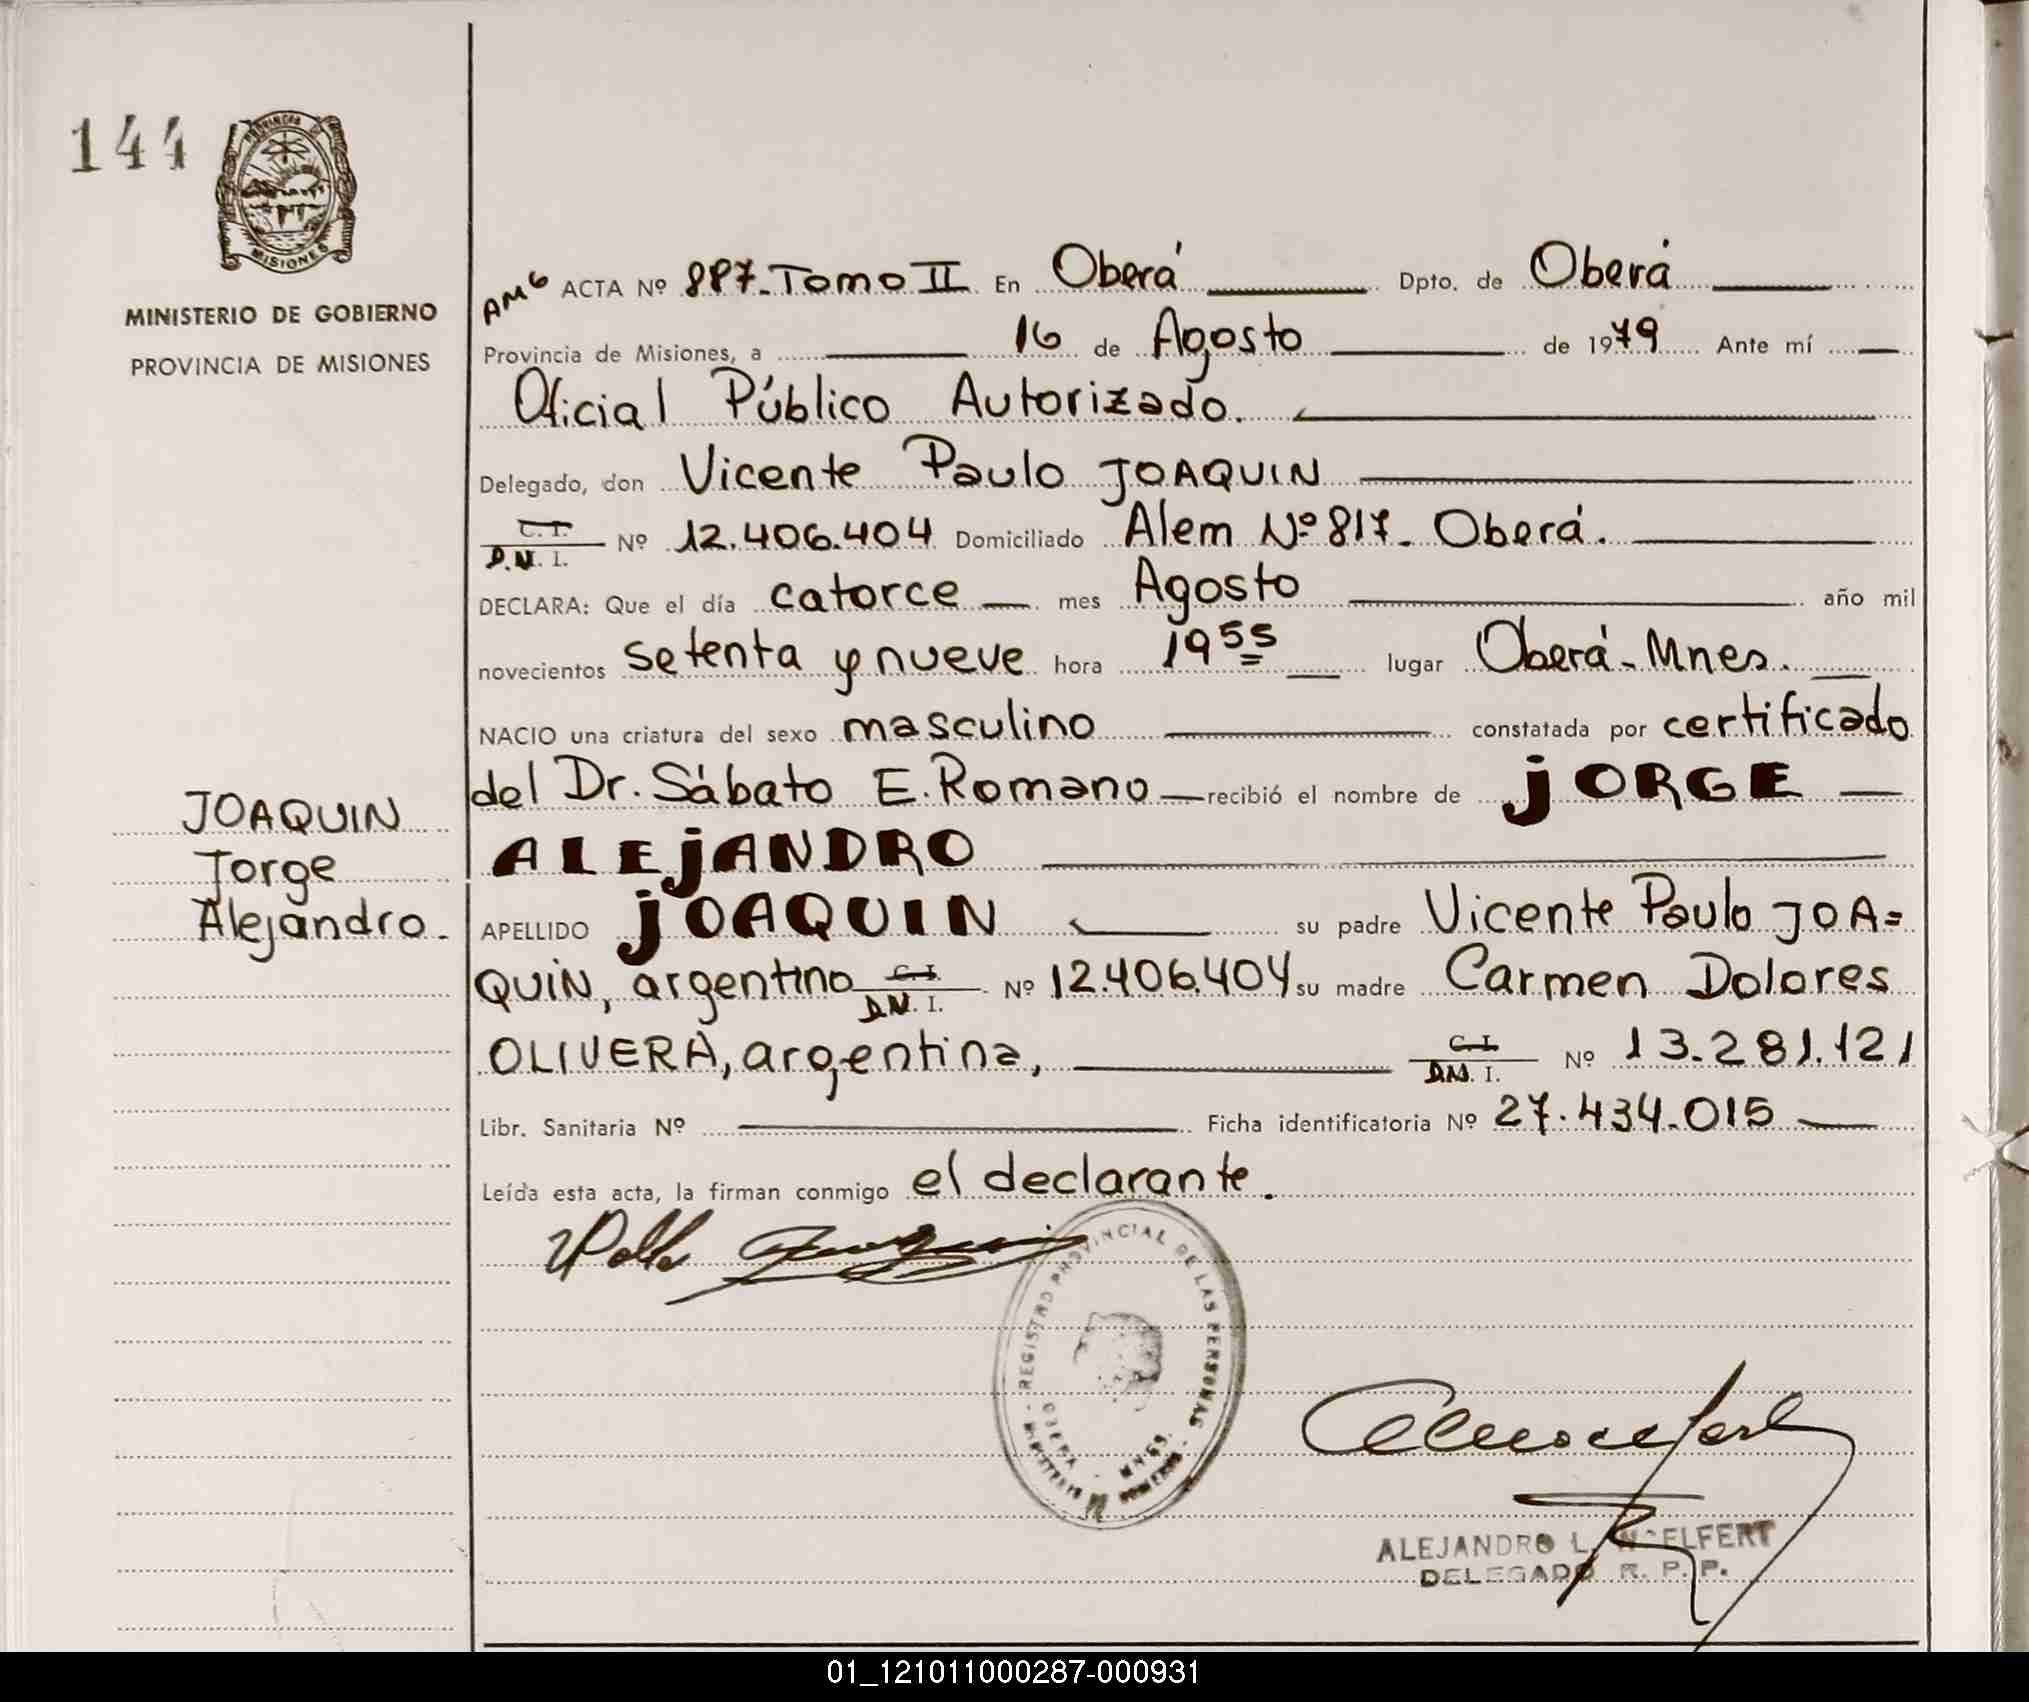 144
PROVINCIA DE
MISIONES
MINISTERIO DE GOBIERNO
PROVINCIA DE MISIONES
JOAQUIN
Jorge
Alejandro.
AM6 ACTA Nº 887-Tomo II En Oberá Dpto. de Oberá
Provincia de Misiones, a 16 de Agosto de 1979 Ante mí
Oficial Público Autorizado.
Delegado, don Vicente Paulo JOAQUIN
C.I.
D.N.I. Nº 12.406.404 Domiciliado Alem Nº 817- Oberá.
DECLARA: Que el día catorce mes Agosto año mil
novecientos setenta y nueve hora 19 55 lugar Oberá-Mnes.
NACIO una criatura del sexo masculino constatada por certificado
del Dr. Sábato E. Romano recibió el nombre de JORGE
ALEJANDRO
APELLIDO JOAQUIN su padre Vicente Paulo JOA=
QUIN, argentino C.I.
D.N.I. Nº 12.406.404 su madre Carmen Dolores
OLIVERA, argentina, C.I.
D.N.I. Nº 13.281.121
Libr. Sanitaria Nº Ficha identificatoria Nº 27.434.015
Leída esta acta, la firman conmigo el declarante.
REGISTRO PROVINCIAL DE LAS PERSONAS
OBERA - MNES.
ALEJANDRO L. WOELFERT
DELEGADO R. P. P.
01_121011000287-000931